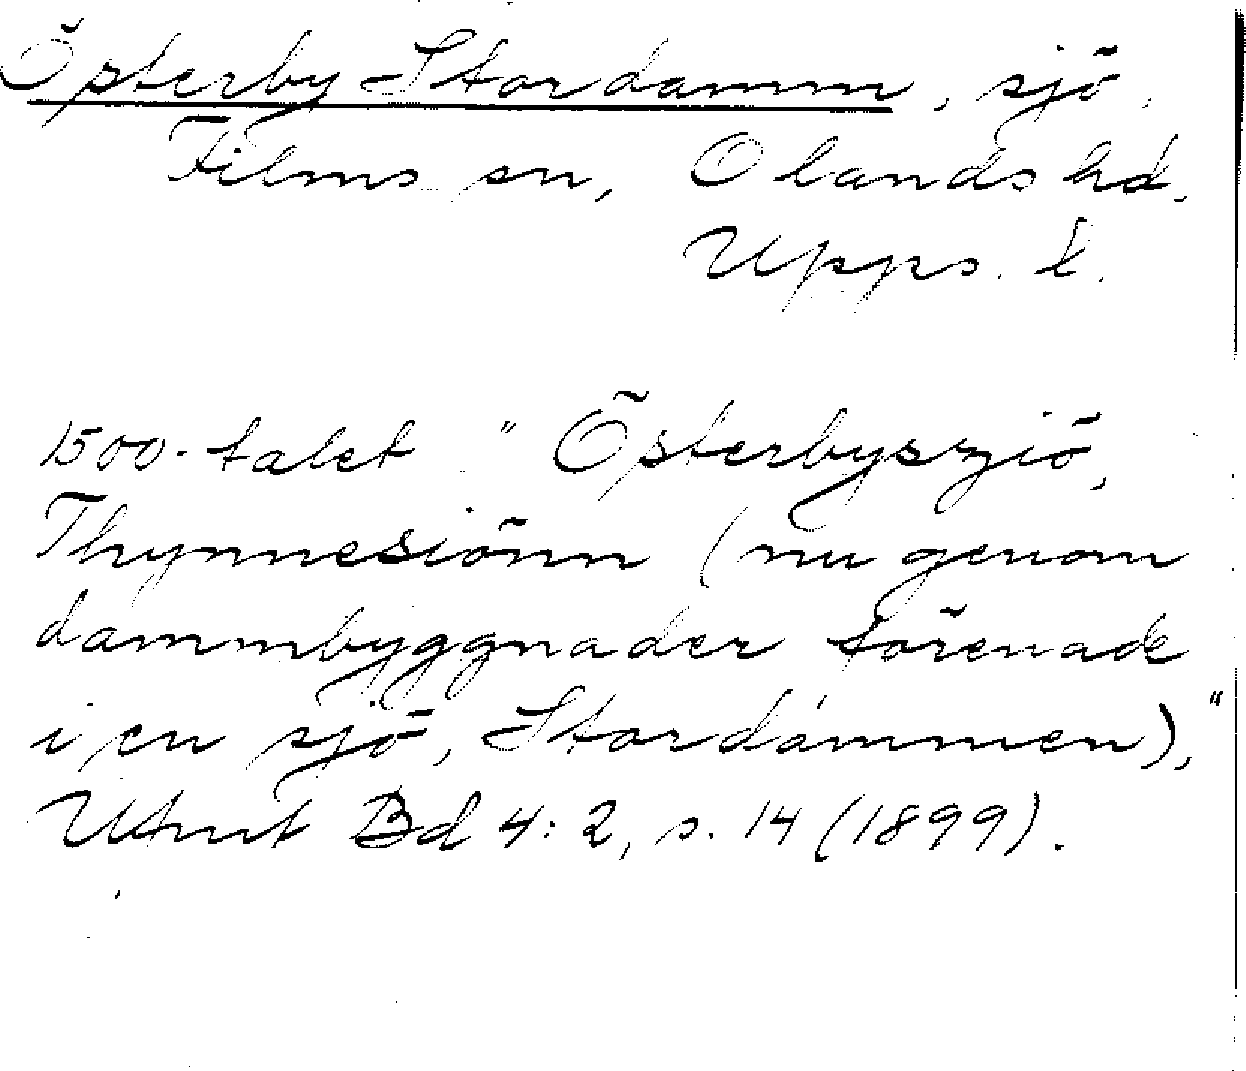 Österby Stordamm, sjö,
Films sn, Olands hd.
Upps. l.
1500-talet "Österbyszjö,
Thynnesiönn (nu genom
dammbyggnader förenade
i en sjö, Stordammen),"
UFmt Bd 4:2, s. 14 (1899).